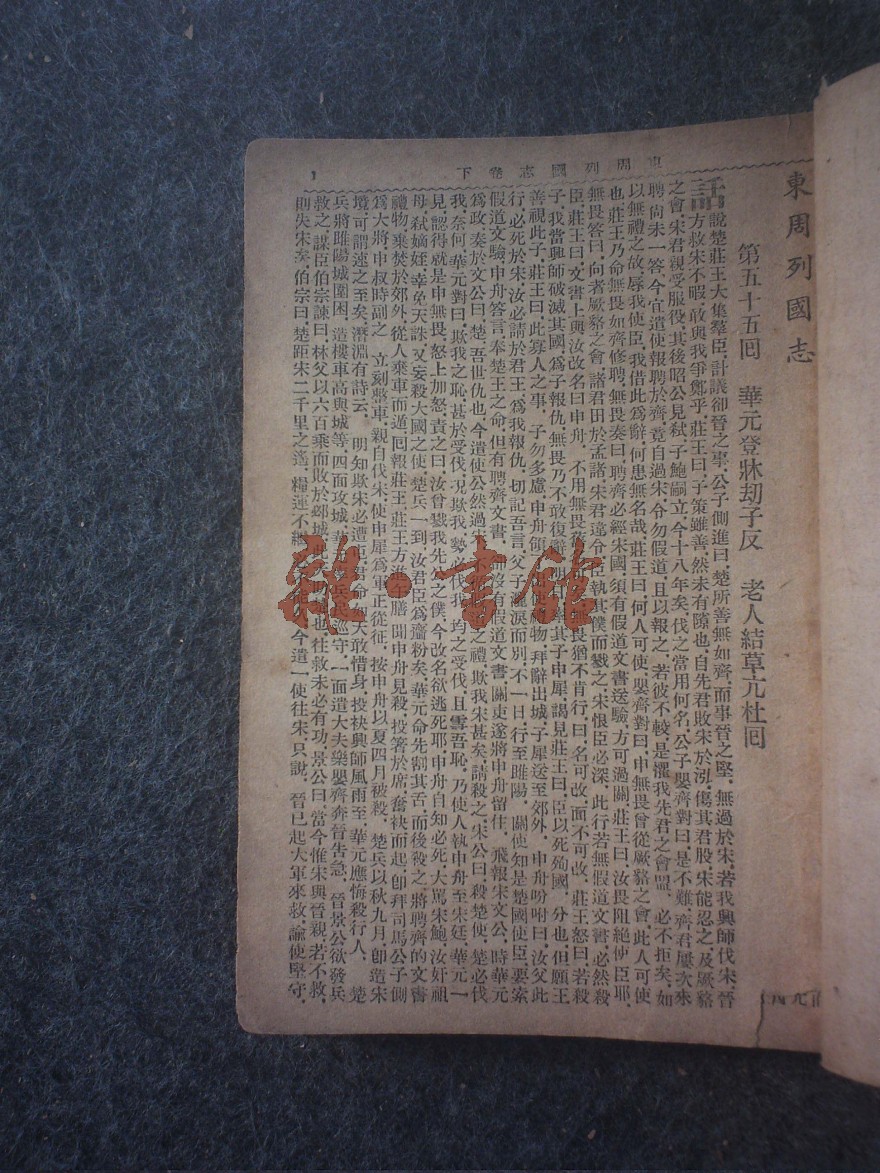 東周列國志卷下
1
東周列國志
第五十五囘 華元登牀劫子反 老人結草亢杜囘
話說楚莊王大集羣臣，計議卻晉之事，公子側進曰，楚所善無如齊，而事晉之堅，無過於宋，若我興師伐宋，晉
方救宋不暇，敢與我爭鄭乎，莊王曰，子策雖善，然未有隙也，自先君敗宋於泓，傷其君股，宋能忍之，及厥貉
之會，宋君親受服役，其後昭公見弒，子鮑嗣立，今十八年矣，伐之當用何名，公子嬰齊對曰，是不難，齊君屢次來
聘，尙未一答，今宜遣使報聘於齊，竟自過宋，令勿假道，且以報之，若彼不較，是懼我，先君之會盟，必不拒矣，如
以無禮之故，辱我使臣，我借此爲辭，何患無名哉，莊王曰，何人可使，嬰齊對曰，申無畏曾從厥貉之會，此人可使
也，莊王乃命無畏如齊修聘，無畏奏曰，聘齊必經宋國，須有假道文書送驗，方可過關，莊王曰，汝畏阻絶使臣耶，
無畏答曰，向者厥貉之會，諸君田於孟諸，宋君違令，臣執其僕而戮之，宋恨臣必深，此行若無假道文書，必然殺
臣，莊王曰，文書上與汝改名曰申舟，不用無畏
無畏猶不肯行，曰，名可改，面不可改，莊王怒曰，若殺
子，我當興師破滅其國，爲子報仇，無畏乃不敢復辭
其子申犀謁見莊王曰，臣以死殉國，分也，但願王
善視此子，莊王曰，此寡人之事，子勿多慮，申舟領
禮物，拜辭出城，子犀送至郊外，申舟吩咐曰，汝父此
行，必死於宋，汝必請於君王，爲我報仇，切記吾言，父子灑淚而別，不一日，行至睢陽，關使知是楚國使臣，要索
假道文驗，申舟答言，奉楚王之命，但有聘齊文書，卻沒有假道文書，關吏遂將申舟留住，飛報宋文公，時華元
爲政，奏於文公曰，楚，吾世仇也，今遣使公然過宋
之禮，欺我宋甚矣，請殺之，宋公曰，殺楚使，楚必伐
我，奈何，華元對曰，欺我之恥，甚於受伐，況欺我，勢必伐我，均之受伐，且雪吾恥，乃使人執申舟至宋廷，華元一
見，認得就是申無畏，怒上加怒，責之曰，汝曾戮我先公之僕，今改名欲逃死耶，申舟自知必死，大罵宋鮑，汝奸祖
母，弒嫡姪，幸免天誅，又妄殺大國之使，楚兵一到，汝君臣爲虀粉矣，華元命先割其舌，而後殺之，將聘齊的文書
禮物，棄焚於郊外，從人棄車而遁，囘報莊王，莊王方進午膳，聞申舟見殺，投箸於席，奮袂而起，卽拜司馬公子側
爲大將，申叔時副之，立刻整車，親自伐宋，使申犀爲軍正從征，按申舟以夏四月被殺，楚兵以秋九月，卽造宋
境，可謂速之至矣，潛淵有詩云， 明知欺宋必遭屯，君命如天敢惜身，投袂興師風雨至，華元應悔殺行人， 楚
兵將睢陽城圍困，造樓車高與城等，四面攻城，華元
巡守，一面遣大夫樂嬰齊奔晉告急，晉景公欲發兵
救之，謀臣伯宗諫曰，林父以六百乘而敗於邲城，此
也，往救未必有功，景公曰，當今惟宋與晉親，若不救，
則失宋矣，伯宗曰，楚距宋二千里之遙，糧運不繼
今遣一使往宋，只說，晉已起大軍來救，諭使堅守，
雜·書館